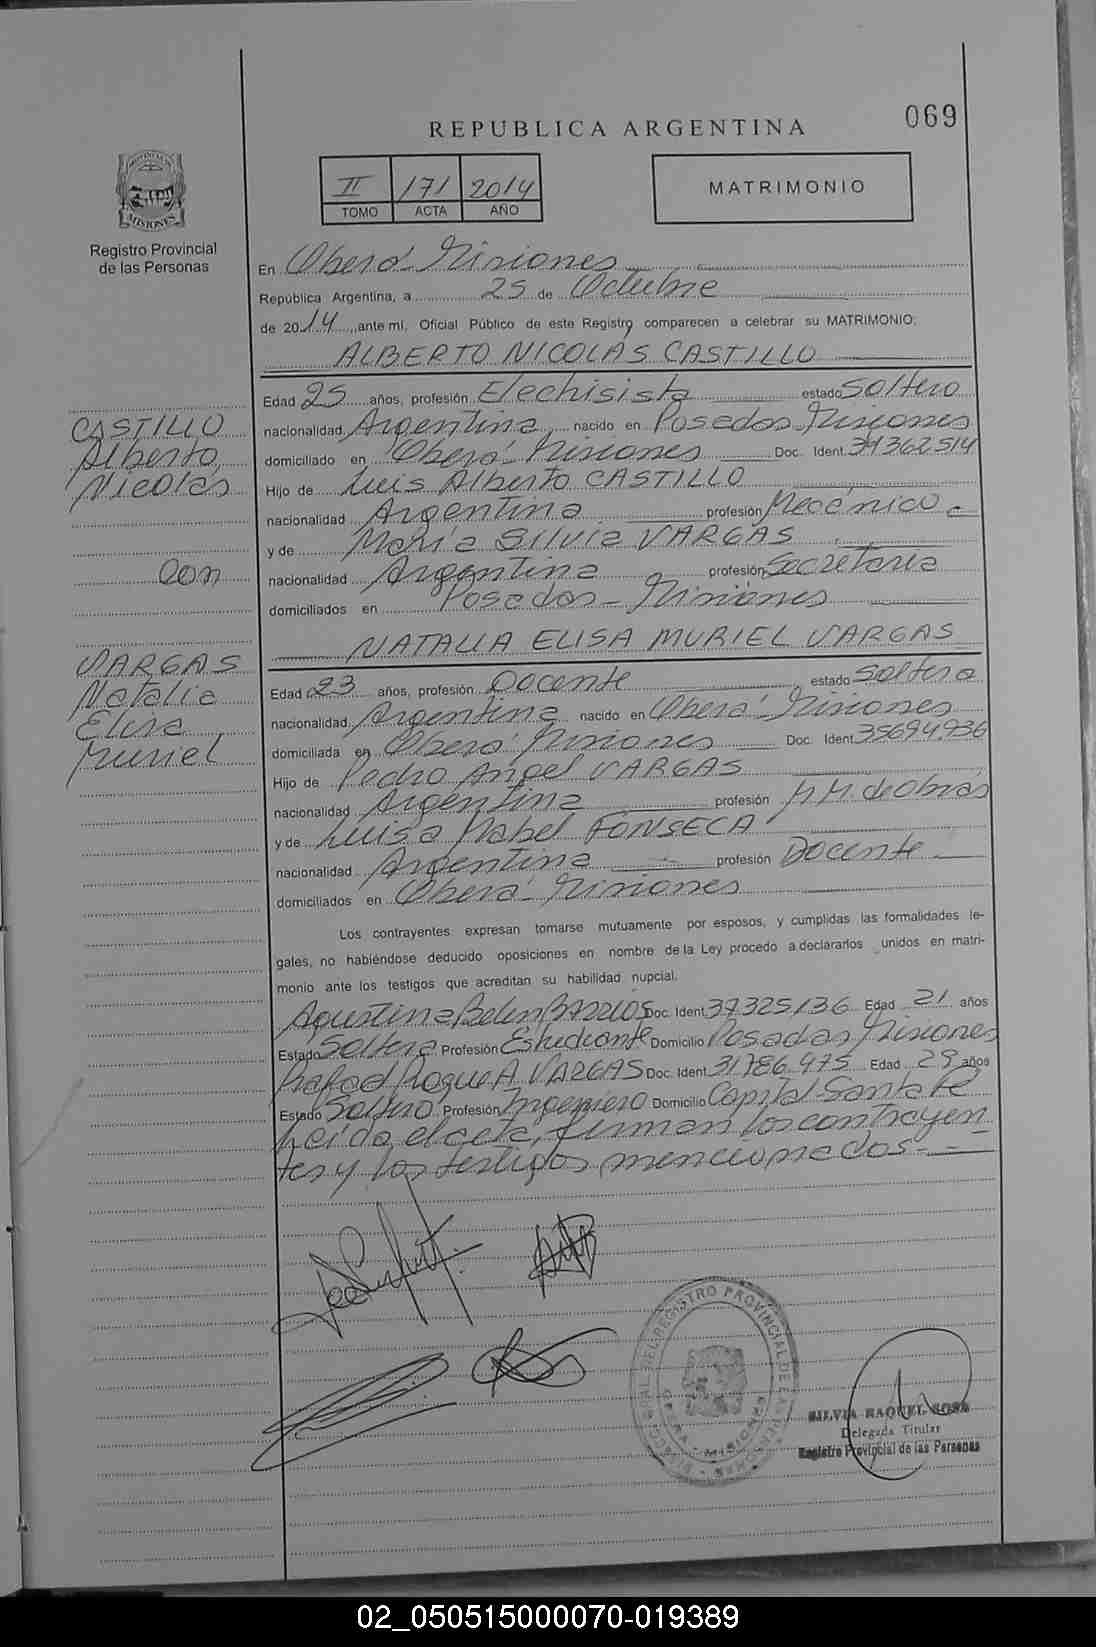 069
REPUBLICA ARGENTINA
II 171 2014
TOMO ACTA AÑO
MATRIMONIO
PROVINCIA DE
MISIONES
Registro Provincial
de las Personas
En Oberá - Misiones
República Argentina, a 25 de Octubre
de 2014, ante mí, Oficial Público de este Registro comparecen a celebrar su MATRIMONIO:
ALBERTO NICOLAS CASTILLO
Edad 25 años, profesión Electricista estado Soltero
nacionalidad Argentina nacido en Posadas Misiones
domiciliado en Oberá - Misiones Doc. Ident. 34362514
Hijo de Luis Alberto CASTILLO
nacionalidad Argentina profesión Mecánico
y de María Silvia VARGAS
nacionalidad Argentina profesión Secretaria
domiciliados en Posadas - Misiones
CASTILLO
Alberto
Nicolas
Con
VARGAS
Natalia
Elisa
Muriel
NATALIA ELISA MURIEL VARGAS
Edad 23 años, profesión Docente estado Soltera
nacionalidad Argentina nacido en Oberá - Misiones
domiciliada en Oberá Misiones Doc. Ident. 35694936
Hijo de Pedro Angel VARGAS
nacionalidad Argentina profesión M.M. de Obras
y de Luisa Mabel FONSECA
nacionalidad Argentina profesión Docente
domiciliados en Oberá - Misiones
Los contrayentes expresan tomarse mutuamente por esposos, y cumplidas las formalidades le-
gales, no habiéndose deducido oposiciones en nombre de la Ley procedo a declararlos unidos en matri-
monio ante los testigos que acreditan su habilidad nupcial.
Agustina Belen BARRIOS Doc. Ident. 37325136 Edad 21 años
Estado Soltera Profesión Estudiante Domicilio Posadas Misiones
Rafael Roque A. VARGAS Doc. Ident. 31786475 Edad 29 años
Estado Soltero Profesión Ingeniero Domicilio Capital - Santa Fe
Leída el acta, firman los contrayen
tes y los testigos mencionados.
REGISTRO PROVINCIAL DE LAS PERSONAS
SILVIA RAQUEL SOSA
Delegada Titular
Registro Provincial de las Personas
02_050515000070-019389